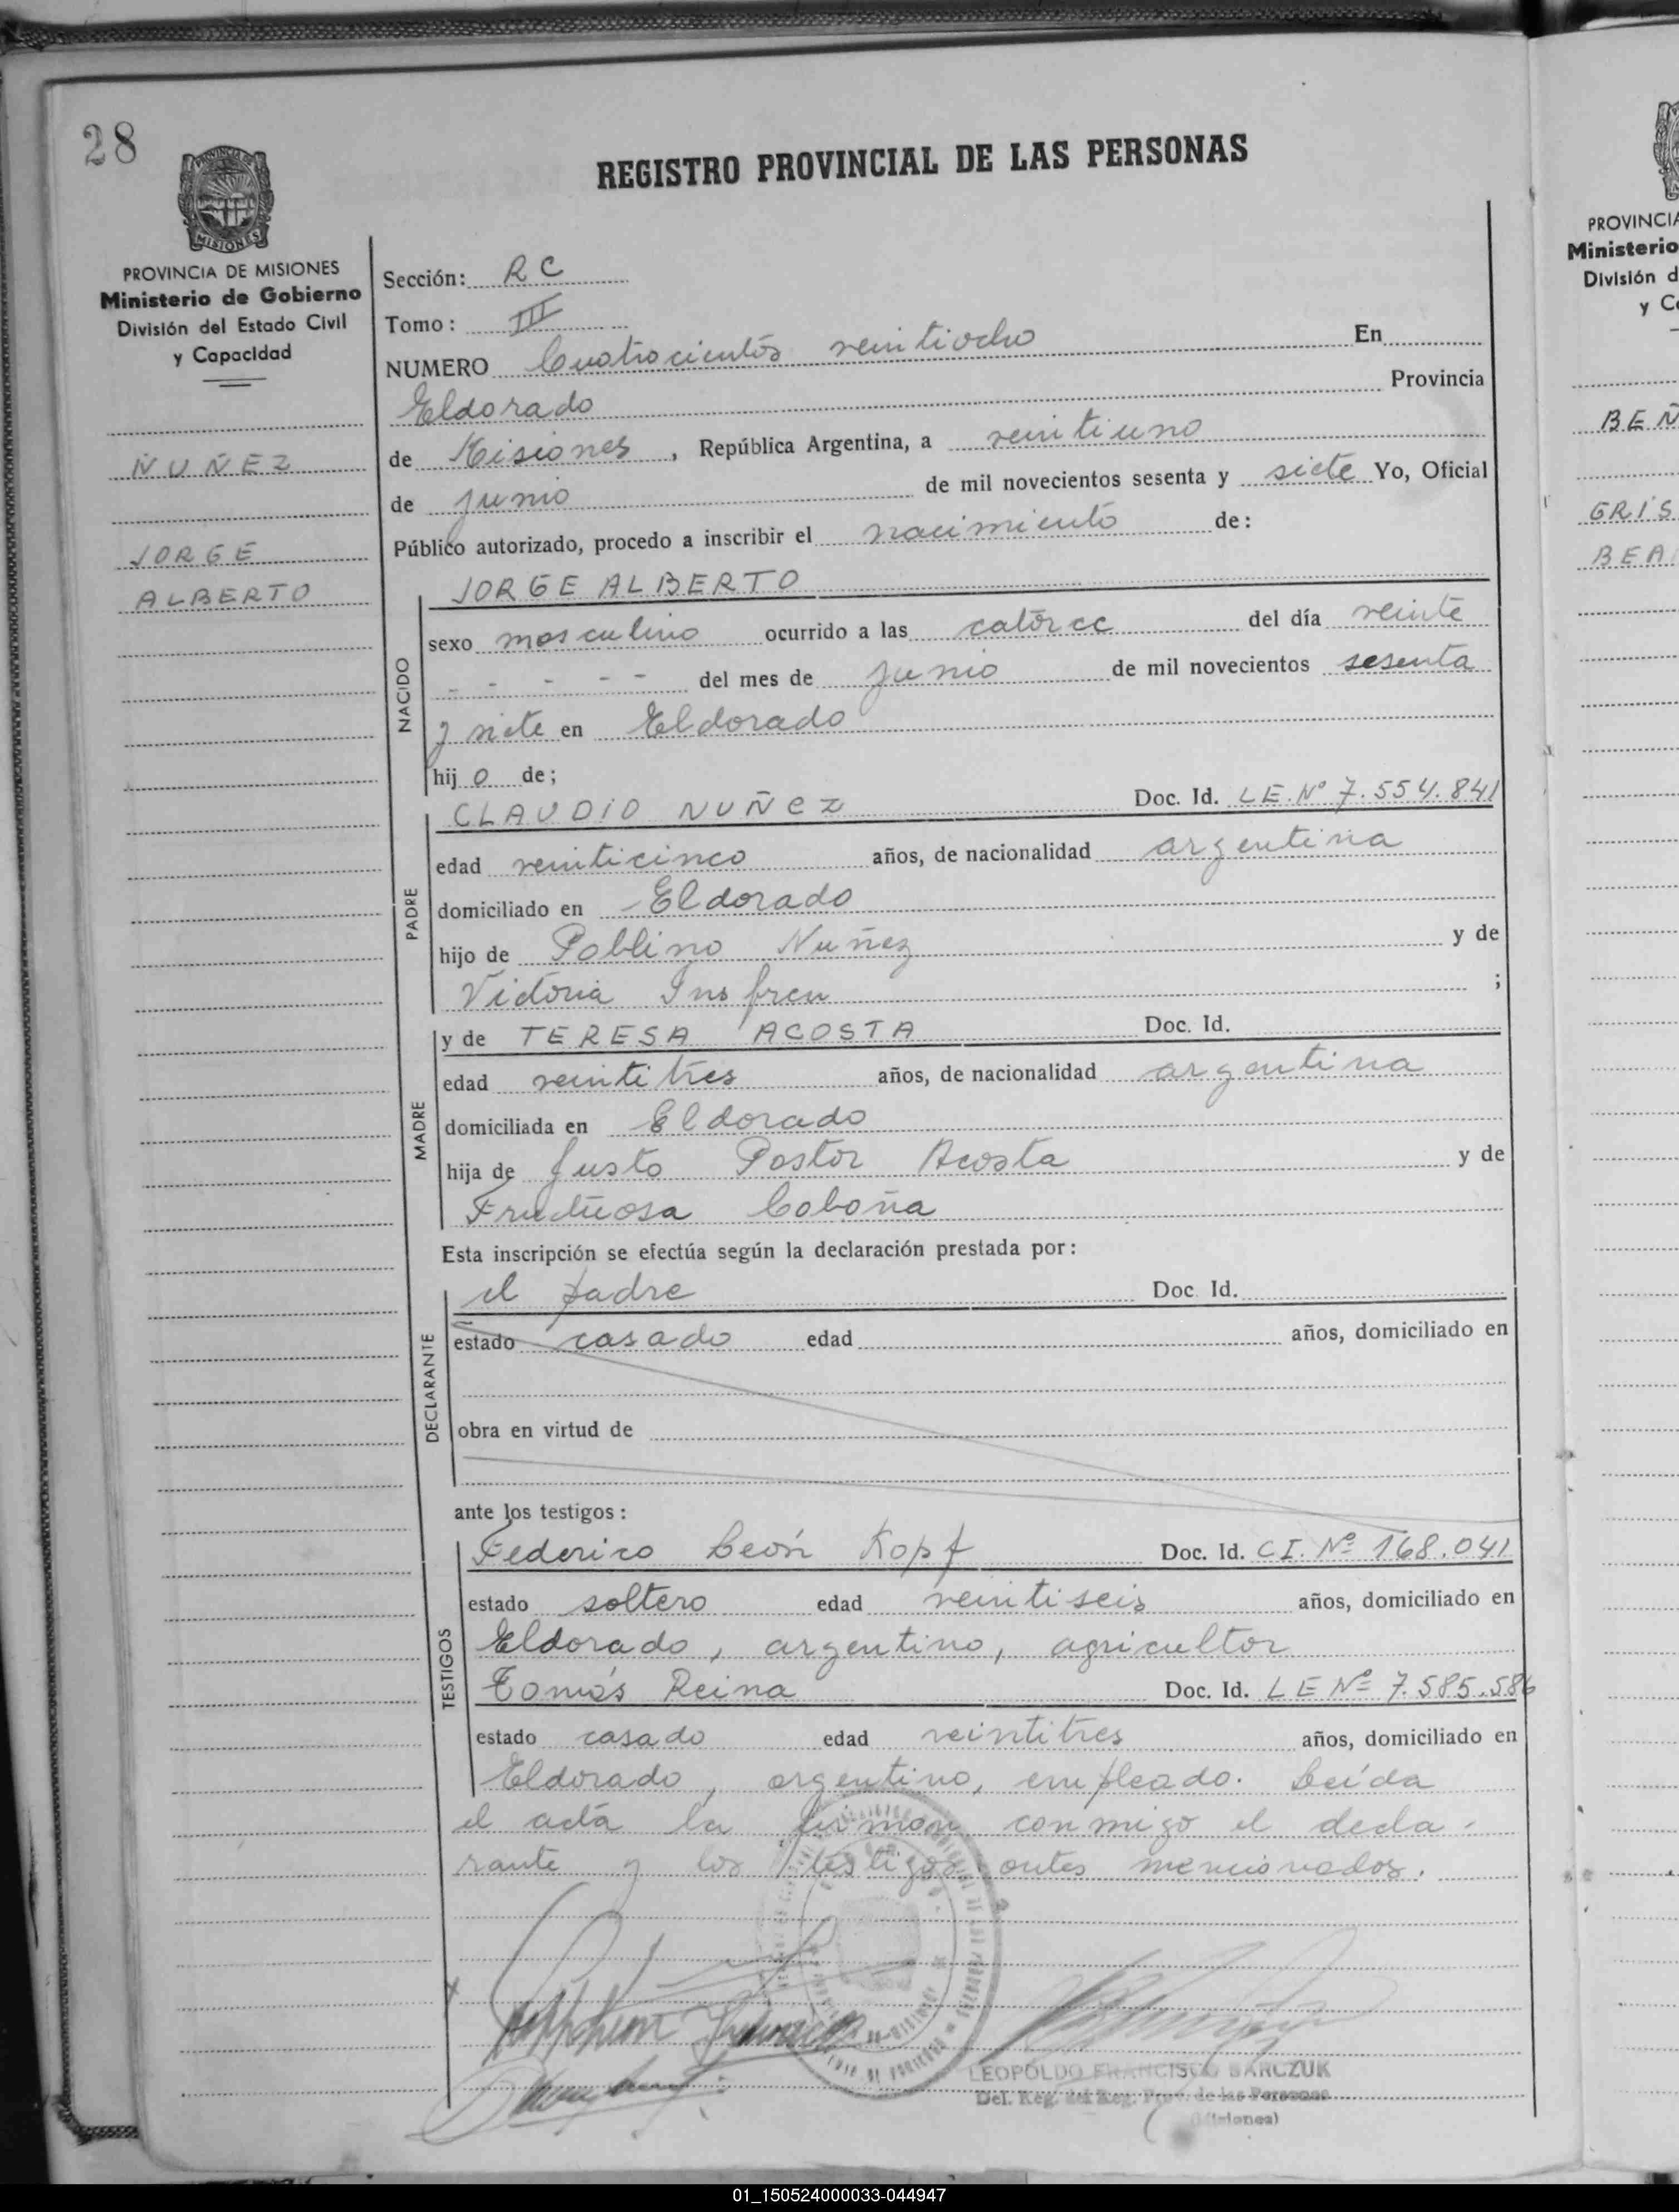 28
REGISTRO PROVINCIAL DE LAS PERSONAS
PROVINCIA DE MISIONES
Ministerio de Gobierno
División del Estado Civil
y Capacidad
NUÑEZ
JORGE
ALBERTO
Sección: RC
Tomo: III
NUMERO Cuatrocientos veintiocho En
Eldorado Provincia
de Misiones, República Argentina, a veintiuno
de junio de mil novecientos sesenta y siete Yo, Oficial
Público autorizado, procedo a inscribir el nacimiento de:
JORGE ALBERTO
NACIDO
sexo masculino ocurrido a las catorce del día veinte
- - - - - del mes de junio de mil novecientos sesenta
y siete en Eldorado
hijo de;
PADRE
CLAUDIO NUÑEZ Doc. Id. LE. Nº 7.554.841
edad veinticinco años, de nacionalidad argentina
domiciliado en Eldorado
hijo de Poblino Nuñez y de
Victoria Insfren ;
MADRE
y de TERESA ACOSTA Doc. Id.
edad veintitres años, de nacionalidad argentina
domiciliada en Eldorado
hija de Justo Pastor Acosta y de
Fructuosa Coboña
Esta inscripción se efectúa según la declaración prestada por:
DECLARANTE
el padre Doc. Id.
estado casado edad años, domiciliado en
obra en virtud de
ante los testigos:
TESTIGOS
Federico León Kopf Doc. Id. CI. Nº 168.041
estado soltero edad veintiseis años, domiciliado en
Eldorado, argentino, agricultor
Tomás Reina Doc. Id. LE Nº 7.585.586
estado casado edad veintitres años, domiciliado en
Eldorado, argentino, empleado. Leída
el acta la firman conmigo el decla-
rante y los testigos antes mencionados.
LEOPOLDO FRANCISCO BARCZUK
Del. Reg. del Reg. Prov. de las Personas
(Misiones)
PROVINCIA
Ministerio
División d
y C
BEÑ
GRIS
BEA
01_150524000033-044947